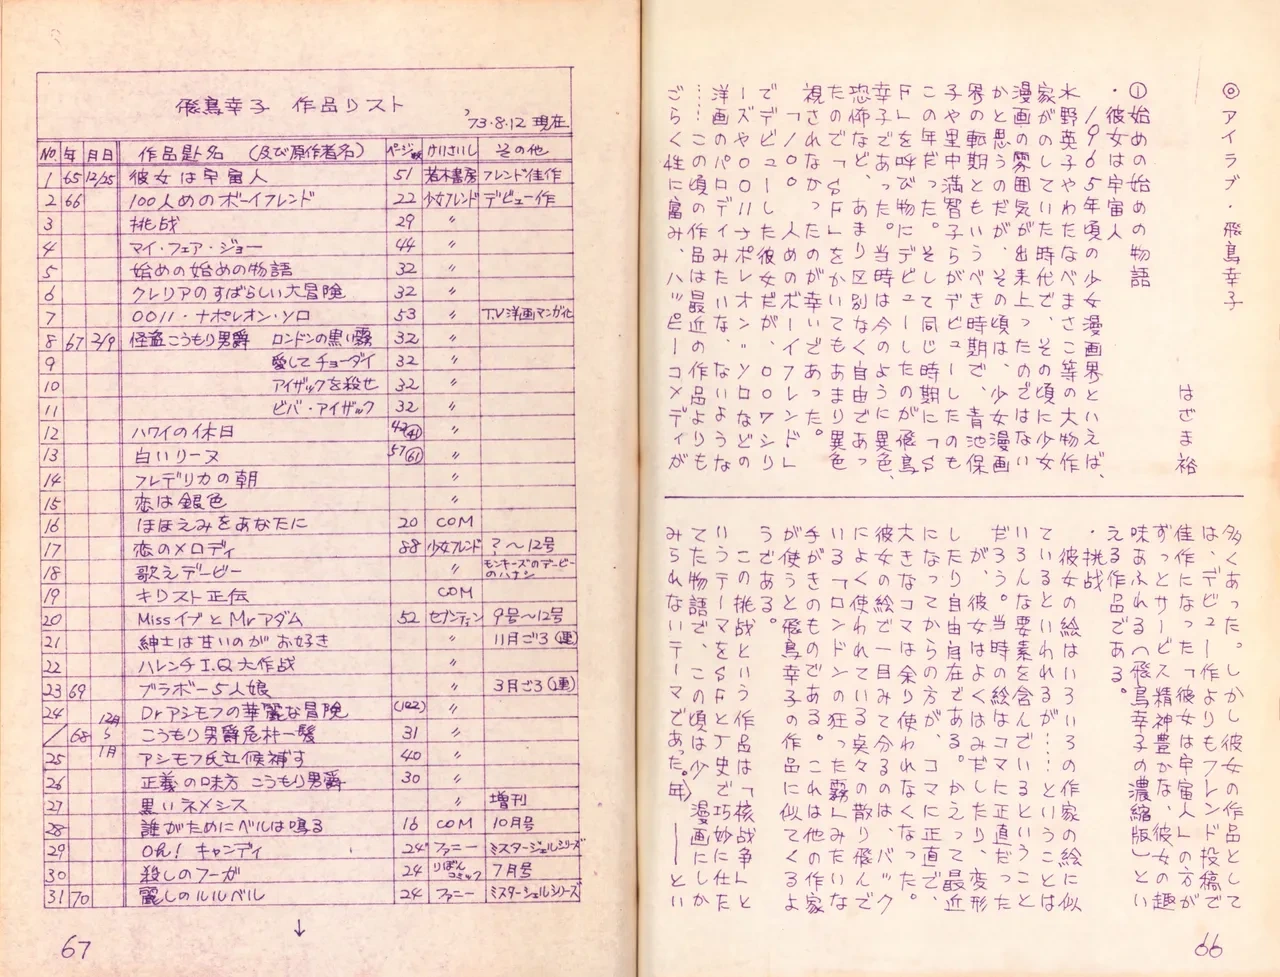 ◎アイラブ・飛鳥幸子
はざま裕
①始めの始めの物語
・彼女は宇宙人
1965年頃の少女漫画界といえば、
水野英子やわたなべまさこ等の大物作
家がのしていた時代で、その頃に少女
漫画の雰囲気が出来上ったのではない
かと思うのだが、その頃は、少女漫画
界の転期ともいうべき時期で、青池保
子や里中満智子らがデビューしたのも
この年だった。そして同じ時期に「S
F」を呼び物にデビューしたのが飛鳥
幸子であった。当時は今のように異色、
恐怖など、あまり区別なく自由であっ
たので「SF」をかいてもあまり異色
視されなかったのが幸いであった。
「100人めのボーイフレンド」
でデビューした彼女だが、00ワシリ
ーズや0011ナポレオン・ソロなどの
洋画のパロディみたいな、ないような
……この頃の作品は最近の作品よりも
ごらく性に富み、ハッピーコメディが
多くあった。しかし彼女の作品として
は、デビュー作よりもフレンド投稿で
佳作になった「彼女は宇宙人」の方が
ずっとサービス精神豊かな、彼女の趣
味あふれる（飛鳥幸子の濃縮版）とい
える作品である。
・挑戦
彼女の絵はいろいろの作家の絵に似
ているといわれるが……ということは
いろんな要素を含んでいるということ
だろう。当時の絵はコマに正直だった
が、彼女はよくはみだしたり、変形
したり自由自在である。かえって最近
になってからの方が、コマに正直で、
大きなコマは余り使われなくなった。
彼女の絵で一目みて分るのは、バック
によく使われている点々の散り飛んで
いる「ロンドンの狂った霧」みたいな
手がきのものである。これは他の作家
が使うと飛鳥幸子の作品に似てくるよ
うである。
この挑戦という作品は「核戦争」と
いうテーマをSFと史で巧妙に仕た
てた物語で、この頃は少 漫画にしか
みられないテーマであった。年）——とい
66
飛鳥幸子 作品リスト
'73.8.12 現在
No. 年 月日 作品題名 (及び原作者名) ページ数 けいさいし その他
1 65 12/25 彼女は宇宙人 51 若木書房 フレンド佳作
2 66 100人めのボーイフレンド 22 少女フレンド デビュー作
3 挑戦 29 〃
4 マイ・フェア・ジョー 44 〃
5 始めの始めの物語 32 〃
6 クレリアのすばらしい大冒険 32 〃
7 0011・ナポレオン・ソロ 53 〃 T.V洋画マンガ化
8 67 2/9 怪盗こうもり男爵 ロンドンの黒い霧 32 〃
9 愛してチョーダイ 32 〃
10 アイザックを殺せ 32 〃
11 ビバ・アイザック 32 〃
12 ハワイの休日 42(41) 〃
13 白いリーヌ 57(61) 〃
14 フレデリカの朝 〃
15 恋は銀色 〃
16 ほほえみをあなたに 20 COM
17 恋のメロディ 88 少女フレンド ?〜12号
18 歌えデービー 〃 モンキーズのデービーのハナシ
19 キリスト正伝 COM
20 MissイブとMrアダム 52 セブンティーン 9号〜12号
21 紳士は甘いのがお好き 〃 11月ごろ(連)
22 ハレンチI.Q大作戦 〃
23 69 ブラボー5人娘 〃 3月ごろ(連)
24 Drアシモフの華麗な冒険 (122) 〃
/ 68 12月5 こうもり男爵危朴一髪 31 〃
25 1月 アシモフ氏立候補す 40 〃
26 正義の味方 こうもり男爵 30 〃
27 黒いネメシス 〃 増刊
28 誰がためにベルは鳴る 16 COM 10月号
29 Oh! キャンディ 24 ファニー ミスタージェルシリーズ
30 殺しのフーガ 24 りぼんコミック 7月号
31 70 麗しのルルベル 24 ファニー ミスタージェルシリーズ
↓
67